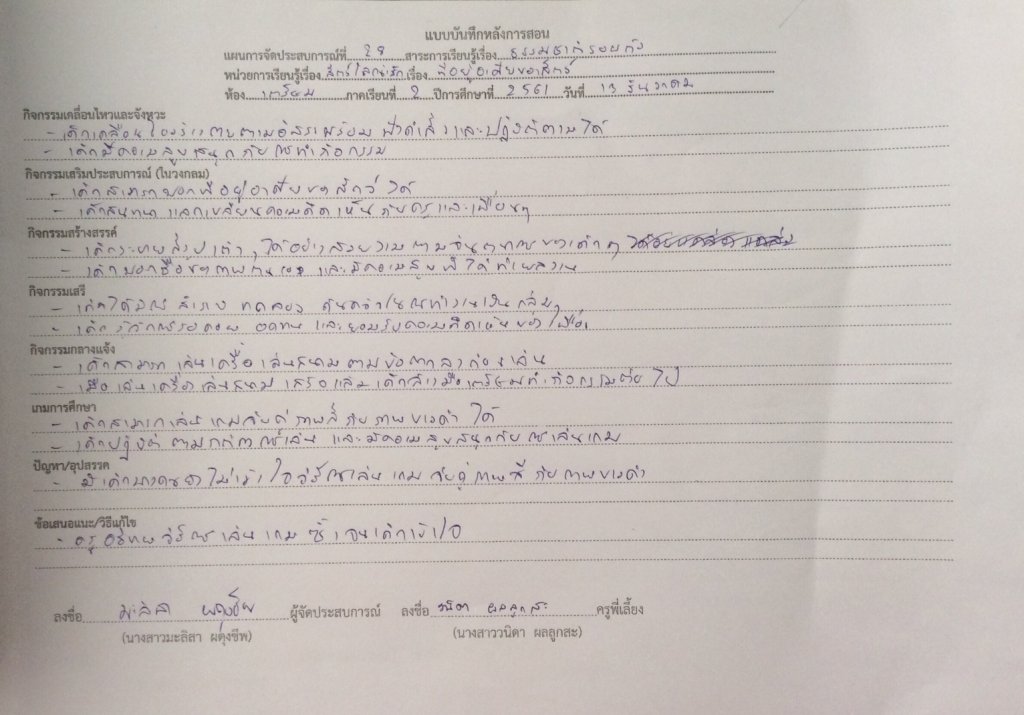 แบบบันทึกหลังการสอน
แผนการจัดประสบการณ์ที่ 29 สาระการเรียนรู้เรื่อง ธรรมชาติรอบตัว
หน่วยการเรียนรู้เรื่อง สัตว์โลกน่ารัก เรื่อง ที่อยู่อาศัยของสัตว์
ห้อง เตรียม ภาคเรียนที่ 2 ปีการศึกษาที่ 2561 วันที่ 13 ธันวาคม
กิจกรรมเคลื่อนไหวและจังหวะ
- เด็กเคลื่อนไหวร่างกายตามอิสระพร้อมฟังคำสั่งและปฏิบัติตามได้
- เด็กมีความสุขสนุกกับการทำกิจกรรม
กิจกรรมเสริมประสบการณ์ (ในวงกลม)
- เด็กสามารถบอกที่อยู่อาศัยของสัตว์ได้
- เด็กสนทนาแลกเปลี่ยนความคิดเห็นกับครูและเพื่อนๆ
กิจกรรมสร้างสรรค์
- เด็กระบายสีรูปเต่า ได้อย่างสวยงามตามจินตนาการของเด็กๆ
- เด็กบอกชื่อของภาพตนเอง และมีความสุขที่ได้ทำผลงาน
กิจกรรมเสรี
- เด็กได้ สำรวจ ทดลอง ค้นคว้า ทำงานเป็นกลุ่ม
- เด็กรู้จักการรอคอย อดทน และยอมรับความคิดเห็นของเพื่อน
กิจกรรมกลางแจ้ง
- เด็กสามารถเล่นเครื่องเล่นสนามตามข้อตกลงก่อนเล่น
- เมื่อเล่นเครื่องเล่นสนามเสร็จแล้วเด็กล้างมือเตรียมทำกิจกรรมต่อไป
เกมการศึกษา
- เด็กสามารถเล่นเกมจับคู่ภาพสีกับภาพขาวดำได้
- เด็กปฏิบัติตามกติกาการเล่น และมีความสุขสนุกกับการเล่นเกม
ปัญหา/อุปสรรค
- มีเด็กบางคนยังไม่เข้าใจวิธีการเล่นเกมจับคู่ภาพสีกับภาพขาวดำ
ข้อเสนอแนะ/วิธีแก้ไข
- ครูอธิบายวิธีการเล่นเกมซ้ำจนเด็กเข้าใจ
ลงชื่อ มะลิสา ผดุงชีพ ผู้จัดประสบการณ์ ลงชื่อ วนิดา ผลลูกสะ ครูพี่เลี้ยง
(นางสาวมะลิสา ผดุงชีพ) (นางสาววนิดา ผลลูกสะ)